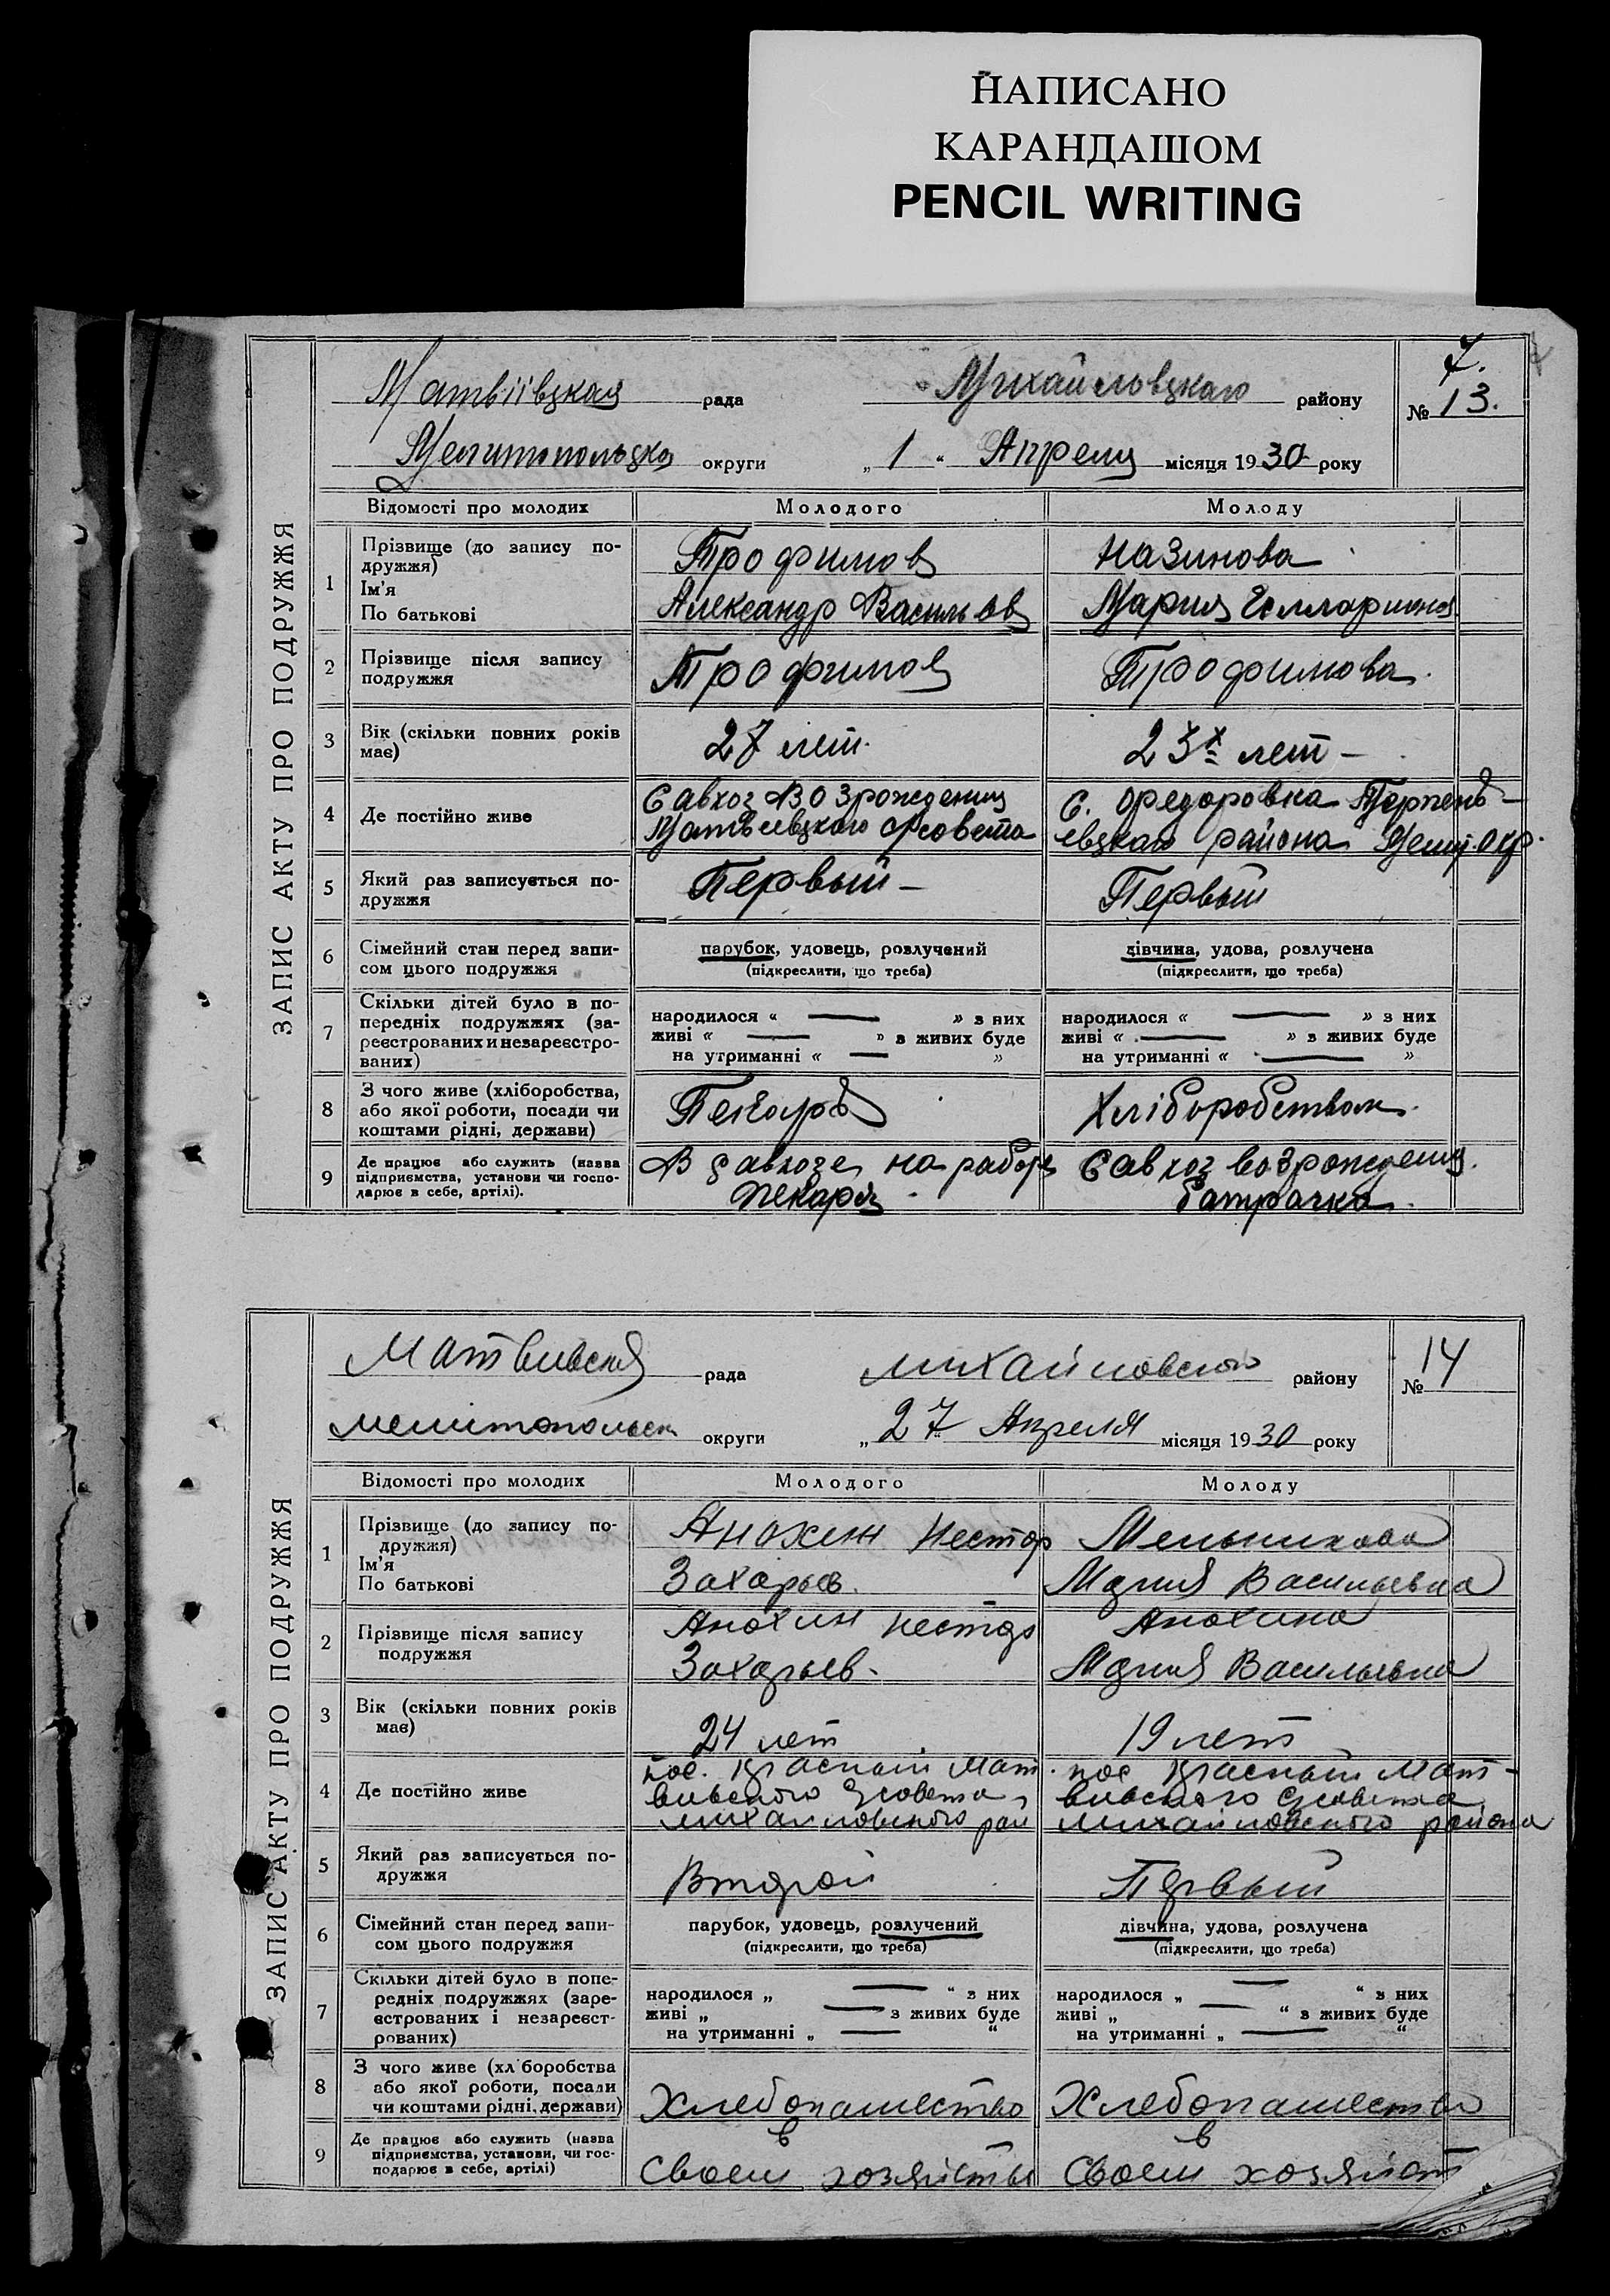 НАПИСАНО
КАРАНДАШОМ
PENCIL WRITING
7.
Матвіівская рада Михайловского району № 13.
Мелитопольско округи „ 1 “ Апреля місяця 1930 року
ЗАПИС АКТУ ПРО ПОДРУЖЖЯ
Відомості про молодих Молодого Молоду
1 Прізвище (до запису по-
дружжя)
Ім'я
По батькові
Трофимов
Александр Васильев
Назинова
Мария
2 Прізвище після запису
подружжя
Трофимов
Трофимова.
3 Вік (скільки повних років
має)
27 лет.
23х лет –
4 Де постійно живе
Савхоз Возрождения
Матвеевского
С. Федоровка Терпень-
евского района Мелит. окр.
5 Який раз записується по-
дружжя
Первый –
Первый
6 Сімейний стан перед запи-
сом цього подружжя
парубок, удовець, розлучений
(підкреслити, що треба)
дівчина, удова, розлучена
(підкреслити, що треба)
7 Скільки дітей було в по-
передніх подружжях (за-
реєстрованих и незареєстро-
ваних)
народилося « — » з них
живі « — » в живих буде
на утриманні « — »
народилося « — » з них
живі « — » в живих буде
на утриманні « — »
8 З чого живе (хліборобства,
або якої роботи, посади чи
коштами рідні, держави)
Пекарь
Хліборобством.
9 Де працює або служить (назва
підприємства, установи чи госпо-
дарює в себе, артілі).
В Савхозе на работе
пекаря
Савхоз возрождения.
батрачка.
Матвиевская рада михайловского району № 14
мелитопольск округи „ 27 Апреля місяця 1930 року
ЗАПИС АКТУ ПРО ПОДРУЖЖЯ
Відомості про молодих Молодого Молоду
1 Прізвище (до запису по-
дружжя)
Ім'я
По батькові
Анохин Нестор
Захарьев.
Мельникова
Мария Васильевна
2 Прізвище після запису
подружжя
Анохин Нестор
Захарьев.
Анохина
Мария Васильевна
3 Вік (скільки повних років
має)
24 лет
19 лет
4 Де постійно живе
пос. Красный Мат.
вивского Ссовета,
михайловского рай
пос Красный Мат-
вивского Ссовета
михайловского района
5 Який раз записується по-
дружжя
Второй
Первый
6 Сімейний стан перед запи-
сом цього подружжя
парубок, удовець, розлучений
(підкреслити, що треба)
дівчина, удова, розлучена
(підкреслити, що треба)
7 Скільки дітей було в попе-
редніх подружжях (заре-
єстрованих і незареєст-
рованих)
народилося „ — “ з них
живі „ — з живих буде
на утриманні „ — “
народилося „ — “ з них
живі „ — “ з живих буде
на утриманні „ — “
8 З чого живе (хл боробства
або якої роботи, посади
чи коштами рідні, держави)
Хлебопашество
Хлебопашество
9 Де працює або служить (назва
підприємства, установи, чи гос-
подарює в себе, артілі)
в
своем хозяйстве
в
своем хозяйст